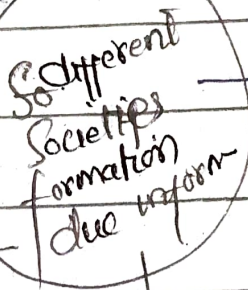 different
So
Societies
formation
due inform